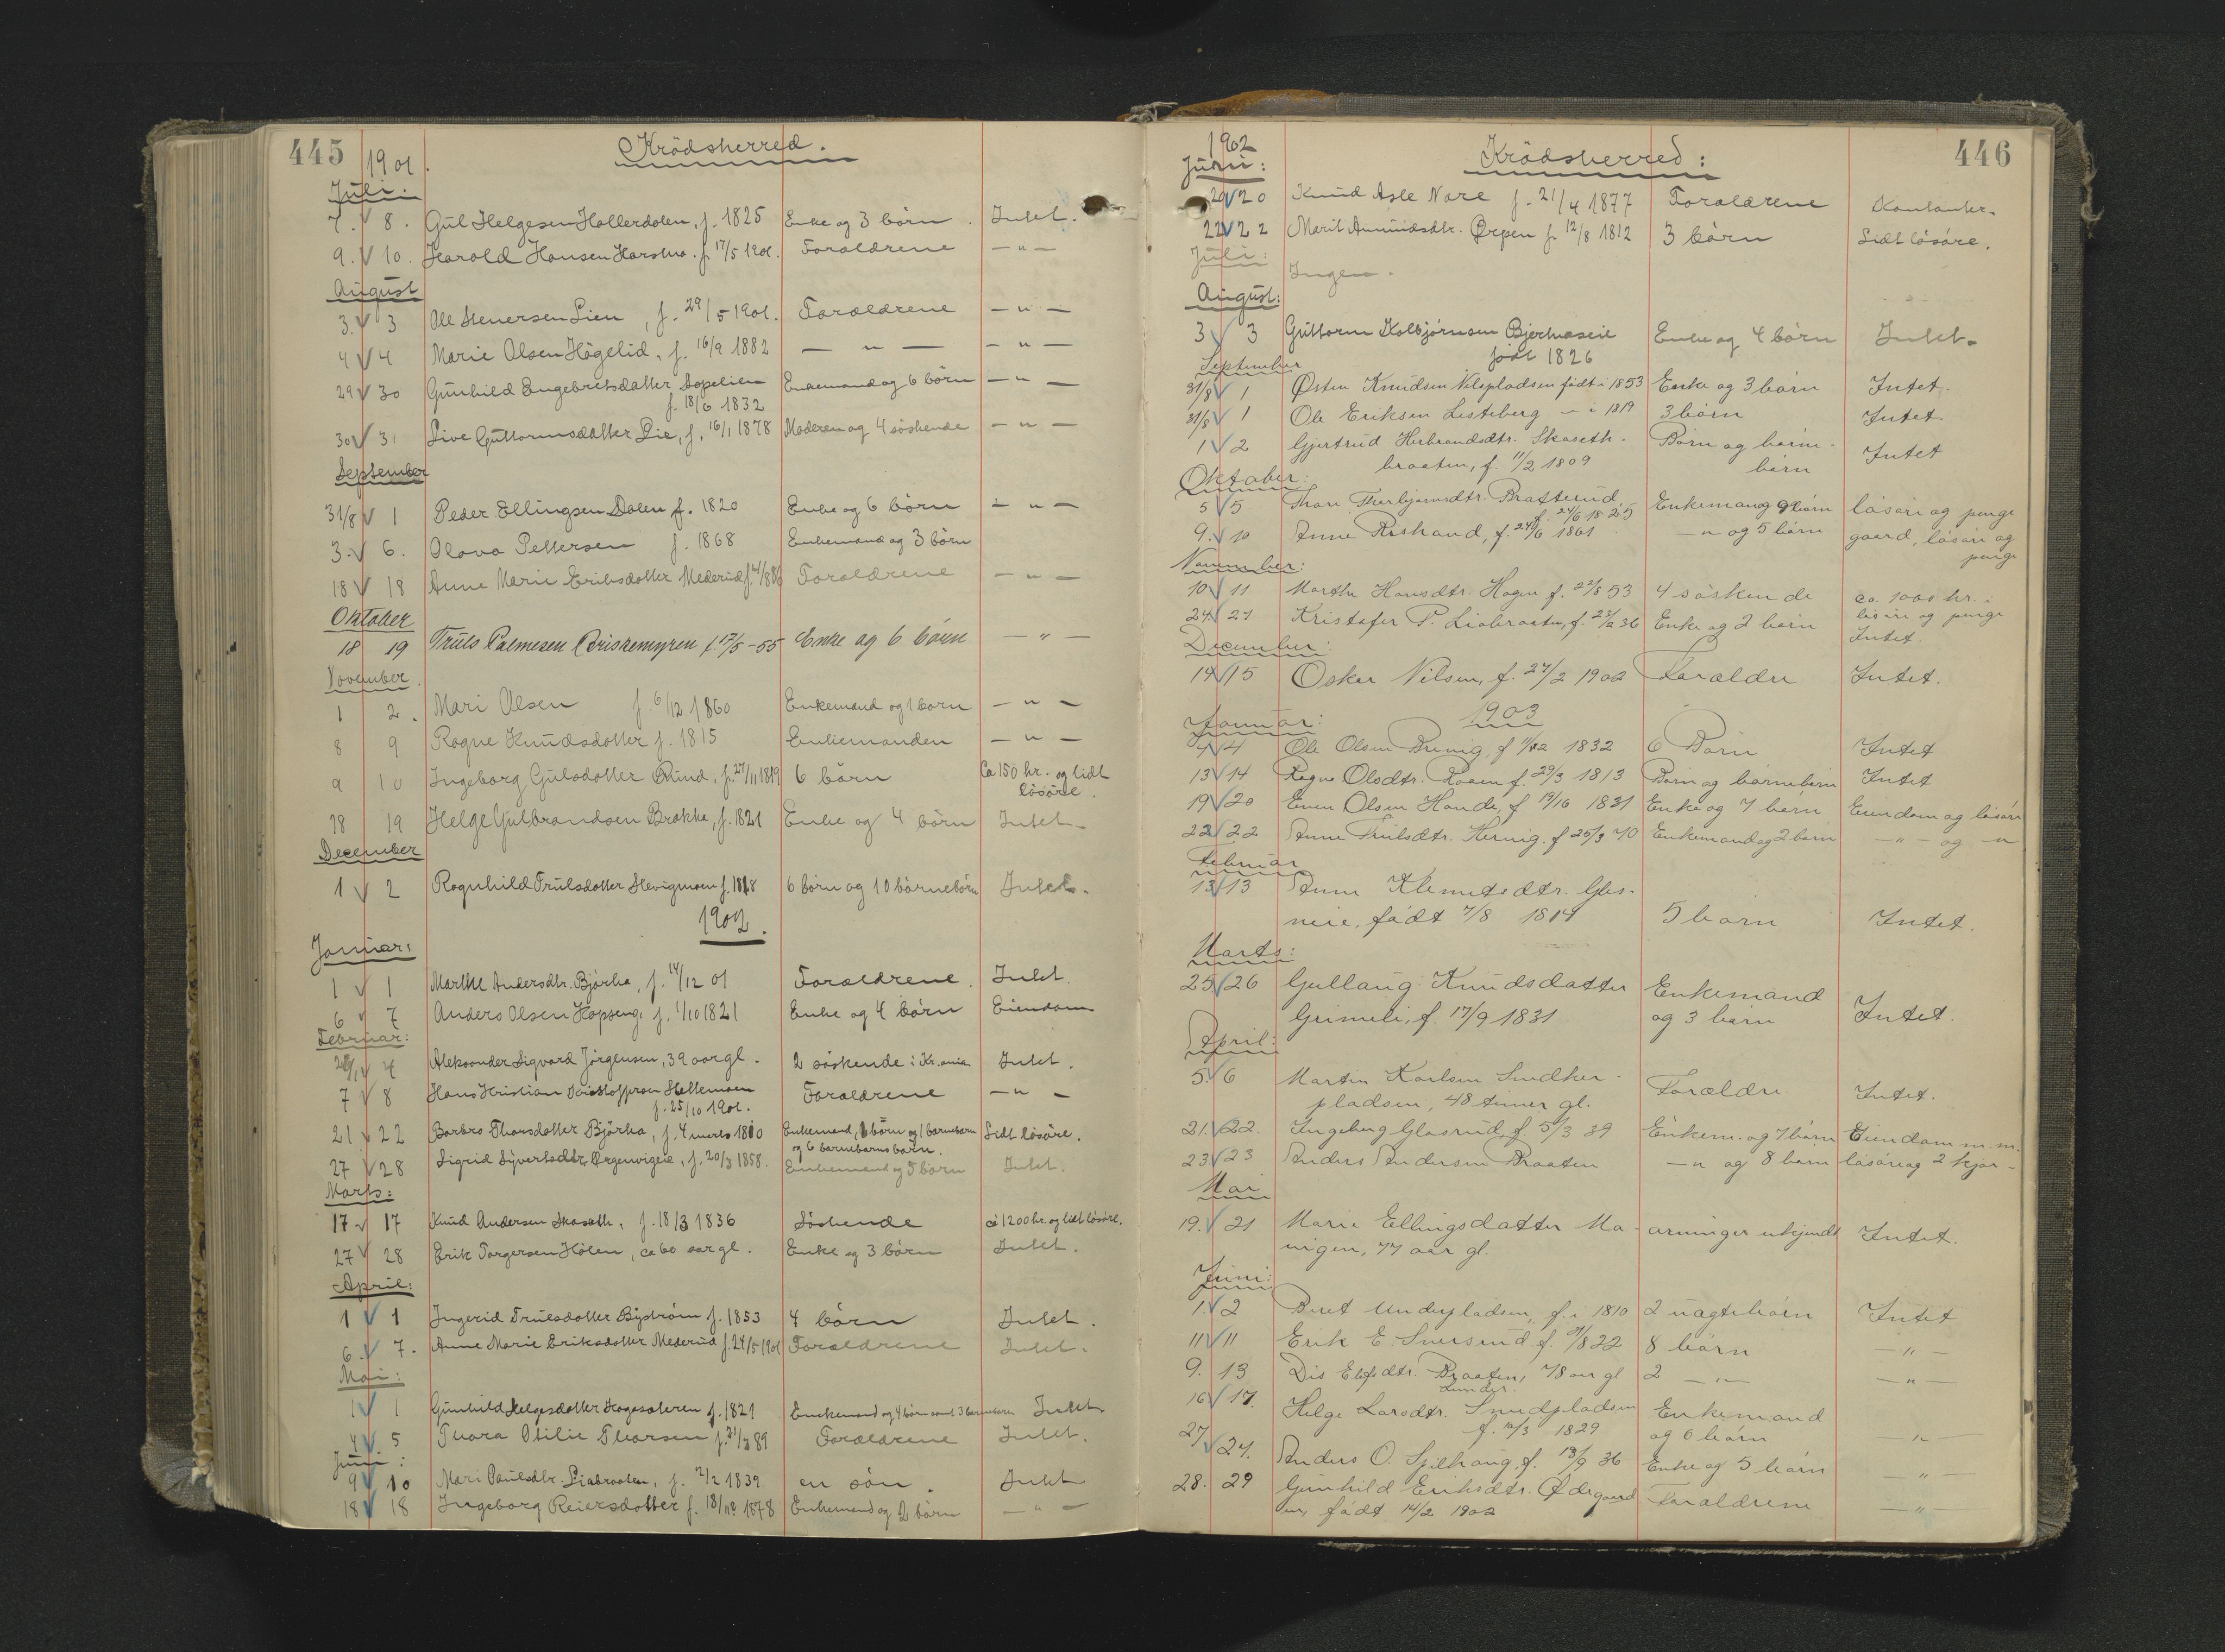 445
1901.
Krödsherred.
Juli:
7. 8. Gul Helgesen Hallerdalen, f. 1825 Enke og 3 börn. Intet.
9. 10. Harald Hansen f. 17/5 1901. Forældrene — " —
August
3. 3 Ole Stenersen Lien, f. 29/5 1901. Forældrene — " —
4 4 Marie Olsen Högelid, f. 16/9 1882 — " — — " —
29 30 Gunhild Engebretsdatter Enkemand og 6 börn — " —
f. 18/6 1832
30 31 Live Guttormsdatter Lie, f. 16/1 1878 Moderen og 4 söskende — " —
September
31/8 1 Peder Ellingsen Dalen f. 1820 Enke og 6 börn — " —
3. 6. Olava Pettersen f. 1868 Enkemand og 3 börn
18 18 Anne Marie Eriksdatter Mederud Forældrene — " —
Oktober
18 19 Truls Palmesen Briskemyren f. 17/5-55 Enke og 6 börn — " —
November.
1 2. Mari Olsen f. 6/12 1860 Enkemand og 1 barn — " —
8 9 Ragne Knudsdatter f. 1815 Enkemanden — " —
9 10 Ingeborg Gulsdatter f. 27/11 1819 6 börn Ca 150 kr. og lidt
lösöre.
18 19 Helge Gulbrandsen Brakka, f. 1821 Enke og 4 börn Intet.
December
1 2 Ragnhild Trulsdatter f. 1818 6 börn og 10 börnebörn Intet.
1902.
Januar:
1 1 Marthe Andersdtr. Bjørka, f. 14/12 01 Forældrene. Intet.
6 7 Anders Olsen Hopseng f. 1/10 1821 Enke og 4 börn Eiendom
Februar:
4 Aleksander Sigvard Jörgensen, 39 aar gl. 2 söskende i Kr.ania Intet.
7 8 Hans Kristian Kristoffersen Forældrene — " —
f. 25/10 1901.
21 22 Barbro Thorsdatter Bjørka, f. 4 marts 1810 Enkemand, börn og 1 barnebarn Lidt lösöre.
og 6 barnebarns barn.
27 28 Sigrid Syvertsdtr. f. 20/3 1858. Enkemand og 5 börn Intet.
Marts:
17 17 Knud Andersen Skaseth, f. 18/3 1836 Söskende ca 1200 kr. og lidt lösöre.
27 28 Erik Torgersen Hölen, ca 60 aar gl. Enke og 3 börn Intet.
April:
1 1 Ingerid Trulsdatter Byström f. 1853 4 börn Intet.
6. 7. Anne Marie Eriksdatter Mederud f. 24/5 1901 Forældrene Intet.
Mai:
1 1 Gunhild Helgesdatter Hagasæteren f. 1821 Enkemand og 4 börn samt 3 barnebarn Intet
4 5 Thora Otilie Thorsen f. 21/3 89 Forældrene Intet.
Juni:
9 10 Mari Paulsdtr. Liabraaten, f. 2/2 1839 en sön. Intet
18 18 Ingeborg Reiersdatter f. 18/12 1878 Enkemand og 2 börn — " —
446
1902
Krödsherred:
Juni:
20 20 Knud Asle Nore f. 21/4 1877 Forældrene Kontanter.
22 22 Marit Amundsdtr. Ørpen f. 12/8 1812 3 börn Lidt lösöre.
Juli:
Ingen.
August:
3 3 Guttorm Kolbjörnsen Enke og 4 börn Intet.
född 1826
September
31/8 1 Østen Knudsen Nilspladsen født i 1853 Enke og 3 barn Intet.
31/8 1 Ole Eriksen Lesteberg — " i 1819 3 börn Intet
1 2 Gjertrud Herbrandsdtr. Skaseth- Börn og barne- Intet
braaten, f. 11/2 1809 börn
Oktober:
5 5 Thore Thorbjörnsdtr. Bratterud, Enkeman og 9 börn lösöre og penge
f. 24/6 1825
9. 10 Anne Rishaud, f. 24/6 1861 — " og 5 börn gaard, lösöre og
penge
November:
10. 11 Marthe Hansdtr. Hagen f. 22/8 53 4 söskende ca. 1000 kr. i
lösöre og penge
24. 27 Kristofer P. Liabraaten, f. 23/12 36 Enke og 2 börn Intet.
December:
14 15 Oskar Nilsen, f. 27/2 1902 Forældre Intet.
1903
Januar:
4 4 Ole Olsen Brenig, f 1832 6 Börn Intet
13 14 Ragne Olsdtr. Roaen f. 29/3 1813 Börn og börnebörn Intet
19 20 Even Olsen Hande, f 1831 Enke og 7 börn Eiendom og lösöre
22 22 Anne Trulsdtr. Kernig. f 25/3 70 Enkemand og 2 börn — " — og — "
Februar
13 13 Anne Klemetsdtr. Gles-
neie, född 7/8 1814 5 börn Intet.
Marts:
25 26 Gullaug Knudsdatter Enkemand
Grimeli, f. 17/9 1831 og 3 börn Intet.
April:
5. 6 Martin Karlsen Smedher-
pladsen, 48 timer gl. Forældre Intet.
21. 22. Ingeborg Glasrud, f 5/3 39 Enkem. og 7 börn Eiendom m. m.
23 23 Anders Andersen Braaten — " og 8 börn lösöre og 2 kjør-
Mai
19. 21 Marie Ellingsdatter Ma- arvinger ukjendt Intet.
nigen, 77 aar gl.
Juni:
1. 2 Beret Underpladsen, f. i 1810 2 uægte börn Intet
11 11 Erik E. Snersrud f. 9/8 22 8 börn — " —
9. 13 Dis Elefsdtr. Braaten, 78 aar gl 2 — " — — " —
16 17. Helge Larsdtr. Smedpladsen Enkemand
f. 1829 og 6 börn — " —
27 27. Anders O. Spilhaug, f. 13/9 36 Enke og 5 börn — " —
28. 29 Gunhild Eriksdtr. Ødegaard Forældrene — " —
en, född 14/2 1902